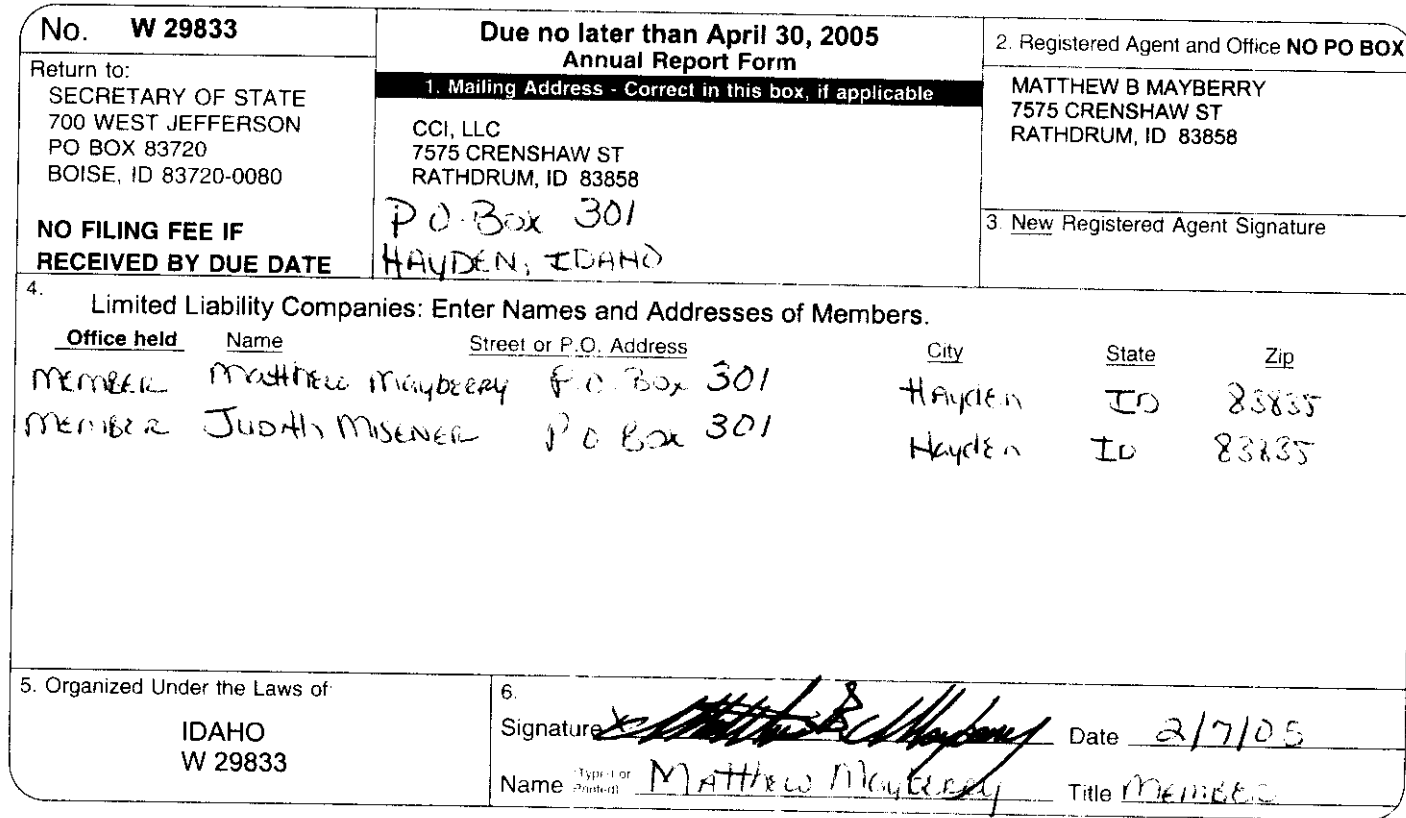 No. W 29833
Return to:
SECRETARY OF STATE
700 WEST JEFFERSON
PO BOX 83720
BOISE, ID 83720-0080
NO FILING FEE IF
RECEIVED BY DUE DATE
Due no later than April 30, 2005
Annual Report Form
1. Mailing Address - Correct in this box, if applicable
CCI, LLC
7575 CRENSHAW ST
RATHDRUM, ID 83858
P O. Box 301
HAYDEN, IDAHO
2. Registered Agent and Office NO PO BOX
MATTHEW B MAYBERRY
7575 CRENSHAW ST
RATHDRUM, ID 83858
3. New Registered Agent Signature
4.
Limited Liability Companies: Enter Names and Addresses of Members.
Office held Name Street or P.O. Address City State Zip
MEMBER Matthew Mayberry P.O. Box 301 Hayden ID 83835
MEMBER JUDAH MISENER P O Box 301 Hayden ID 83835
5. Organized Under the Laws of:
IDAHO
W 29833
6.
Signature X Matthew B Mayberry Date 2/7/05
Name (Typed or Printed) Matthew Mayberry Title MEMBER